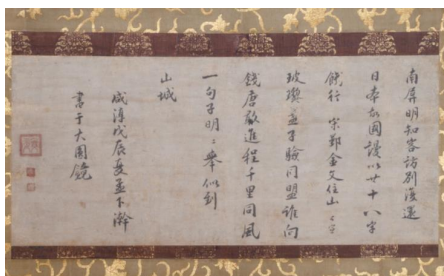 南屏明知客訪別復還
日本故國謾以廿十八字
餞行
玻瓈盞子驗同盟誰向
錢唐啟進程千里同風
一句子明〻舉似到
山城
咸淳戊辰夏孟下澣
書于大圓鏡